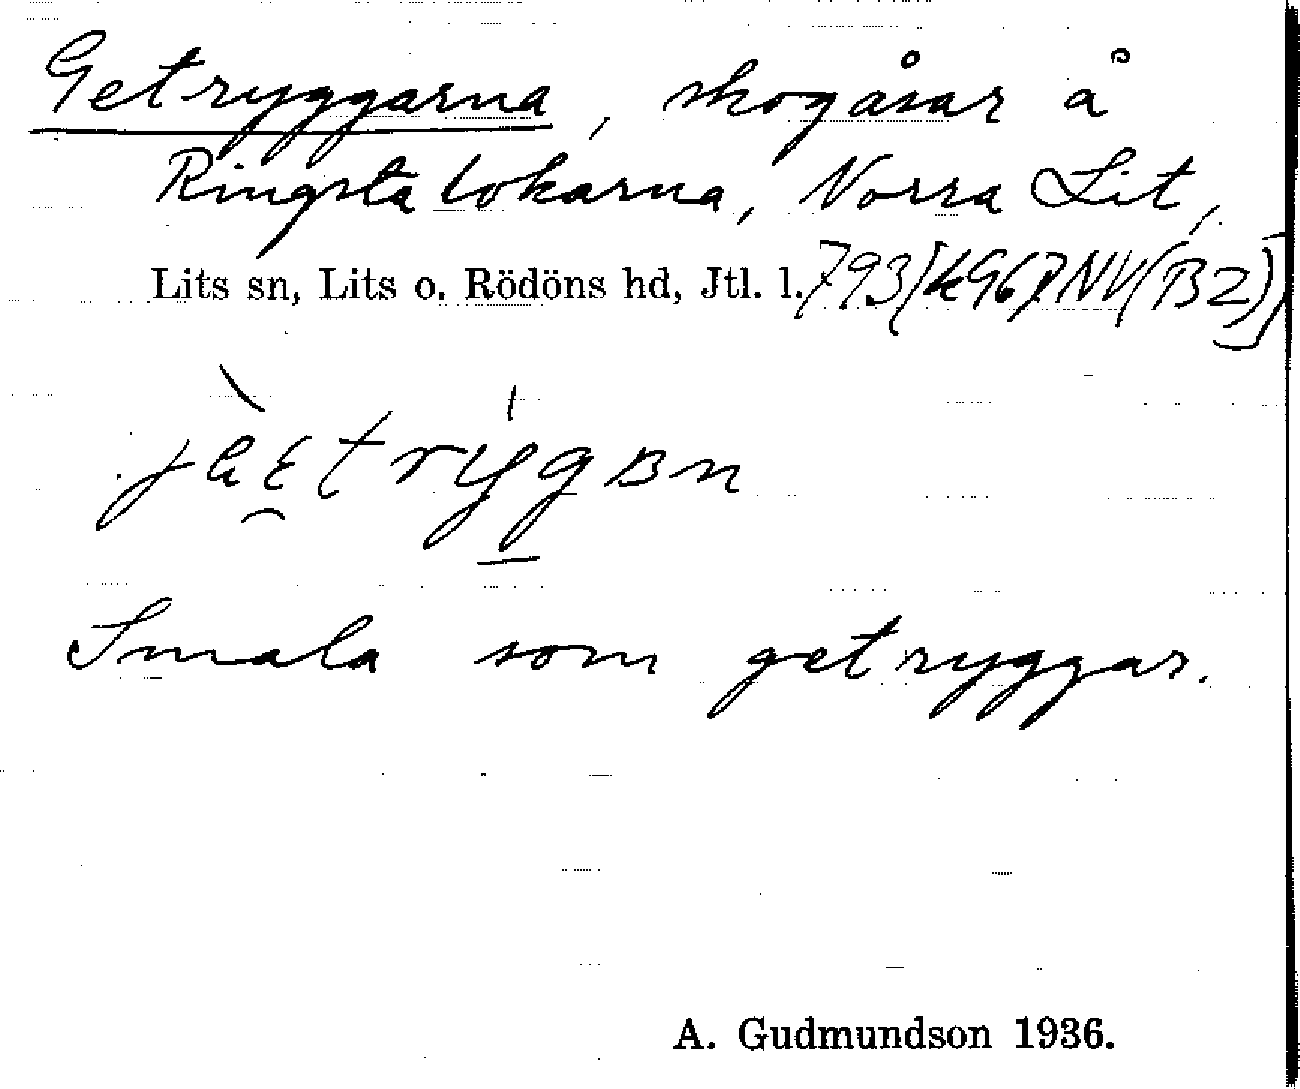 Getryggarna, skogåsar å
Ringsta lokarna, Norra Lit,
Lits sn, Lits o. Rödöns hd, Jtl. l.
Smala som getryggar.
A. Gudmundson 1936.